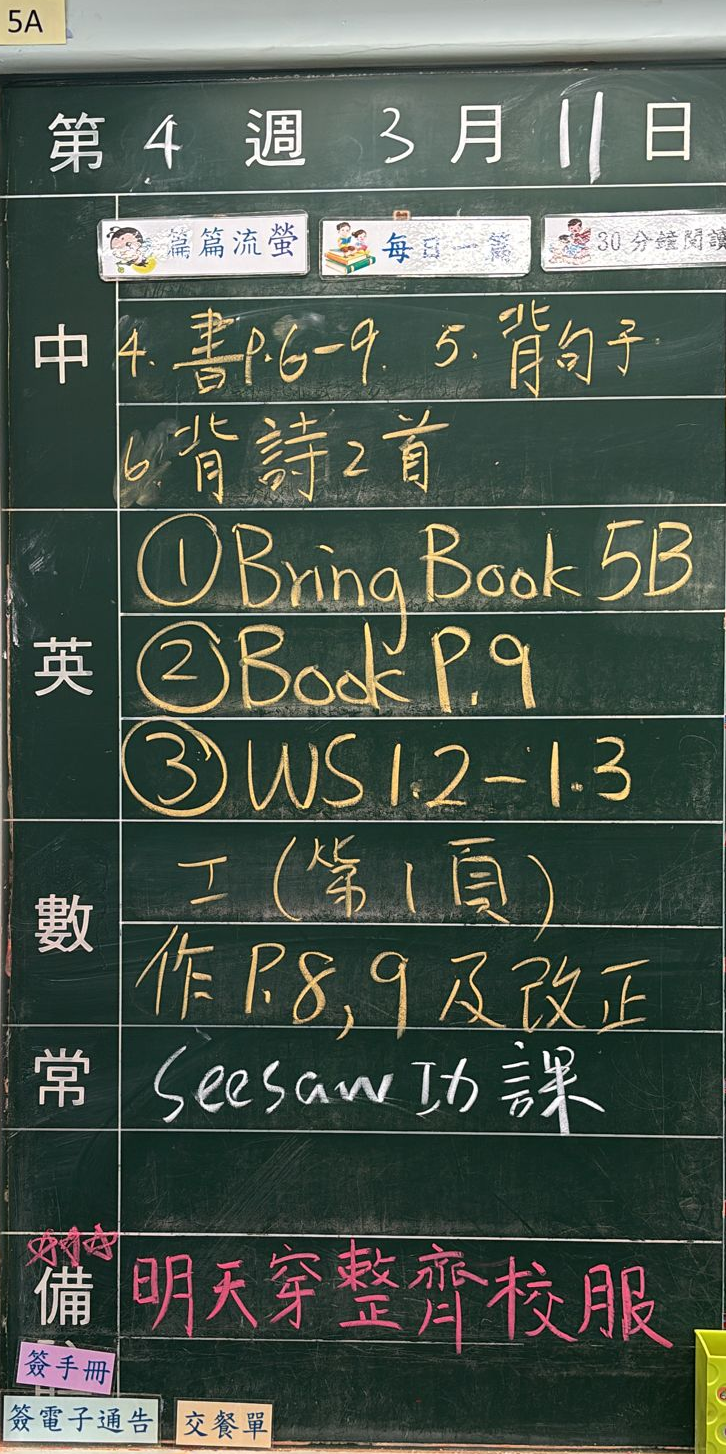 5A
第 4 週 3 月 11 日
篇篇流螢 每日一篇 30分鐘閱讀
中 4. 書P.6-9. 5. 背句子
6. 背詩2首
① Bring Book 5B
英 ② Book P.9
③ WS 1.2-1.3
工 (第1頁)
數
作 P.8,9及改正
常 Seesaw 功課
明天穿整齊校服
備
簽手冊
簽電子通告 交餐單